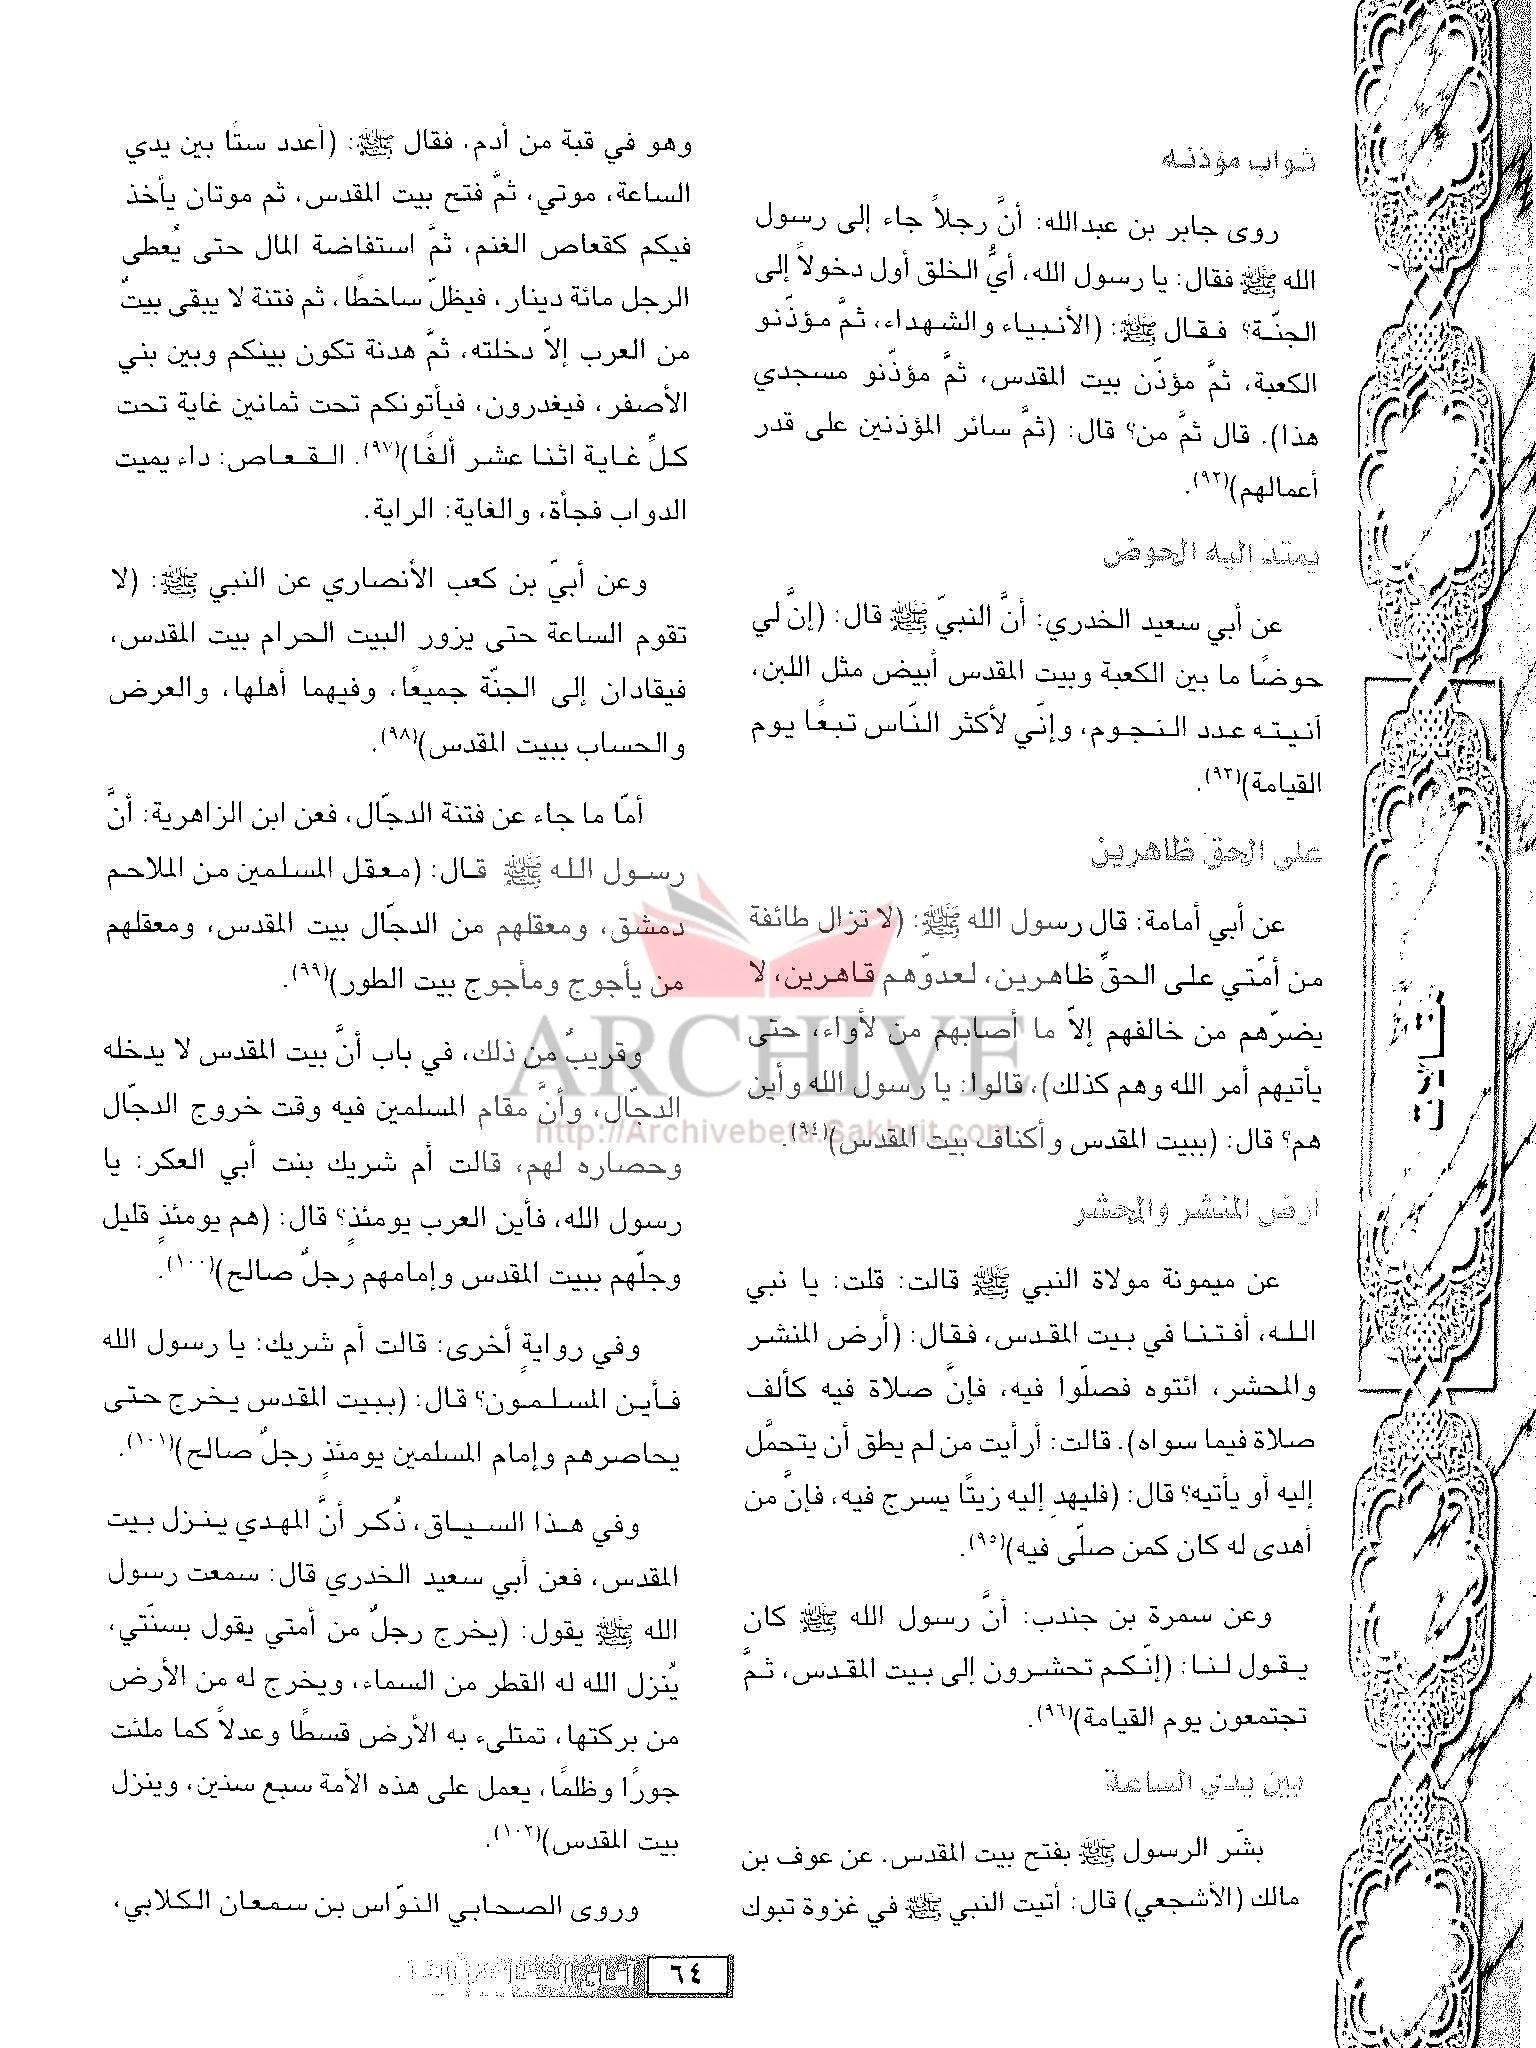 ثواب مؤذنه
روى جابر بن عبدالله: أنَّ رجلاً جاء إلى رسول
الله ﷺ فقال: يا رسول الله، أيُّ الخلق أول دخولاً إلى
الجنّة؟ فقال ﷺ: (الأنبياء والشهداء، ثمَّ مؤذّنو
الكعبة، ثمَّ مؤذّن بيت المقدس، ثمَّ مؤذّنو مسجدي
هذا). قال ثمَّ من؟ قال: (ثمَّ سائر المؤذنين على قدر
أعمالهم)(٩٢).
يمتد إليه الحوض
عن أبي سعيد الخدري: أنَّ النبيّ ﷺ قال: (إنَّ لي
حوضًا ما بين الكعبة وبيت المقدس أبيض مثل اللبن،
آنيته عدد النجوم، وإنّي لأكثر النّاس تبعًا يوم
القيامة)(٩٣).
على الحق ظاهرين
عن أبي أمامة: قال رسول الله ﷺ: (لا تزال طائفة
من أمّتي على الحقِّ ظاهرين، لعدوّهم قاهرين، لا
يضرّهم من خالفهم إلاّ ما أصابهم من لأواء، حتى
يأتيهم أمر الله وهم كذلك)، قالوا: يا رسول الله وأين
هم؟ قال: (ببيت المقدس وأكناف بيت المقدس)(٩٤).
أرض المنشر والمحشر
عن ميمونة مولاة النبي ﷺ قالت: قلت: يا نبي
الله، أفتنا في بيت المقدس، فقال: (أرض المنشر
والمحشر، ائتوه فصلّوا فيه، فإنَّ صلاة فيه كألف
صلاة فيما سواه). قالت: أرأيت من لم يطق أن يتحمَّل
إليه أو يأتيه؟ قال: (فليهدِ إليه زيتًا يسرج فيه، فإنَّ من
أهدى له كان كمن صلّى فيه)(٩٥).
وعن سمرة بن جندب: أنَّ رسول الله ﷺ كان
يقول لنا: (إنّكم تحشرون إلى بيت المقدس، ثمَّ
تجتمعون يوم القيامة)(٩٦).
بين يدي الساعة
بشّر الرسول ﷺ بفتح بيت المقدس. عن عوف بن
مالك (الأشجعي) قال: أتيت النبي ﷺ في غزوة تبوك
وهو في قبة من أدم، فقال ﷺ: (أعدد ستًا بين يدي
الساعة، موتي، ثمَّ فتح بيت المقدس، ثم موتان يأخذ
فيكم كقعاص الغنم، ثمَّ استفاضة المال حتى يُعطى
الرجل مائة دينار، فيظلّ ساخطًا، ثم فتنة لا يبقى بيتٌ
من العرب إلاّ دخلته، ثمَّ هدنة تكون بينكم وبين بني
الأصفر، فيغدرون، فيأتونكم تحت ثمانين غاية تحت
كلِّ غاية اثنا عشر ألفًا)(٩٧). القعاص: داء يميت
الدواب فجأة، والغاية: الراية.
وعن أبيّ بن كعب الأنصاري عن النبي ﷺ: (لا
تقوم الساعة حتى يزور البيت الحرام بيت المقدس،
فيقادان إلى الجنّة جميعًا، وفيهما أهلها، والعرض
والحساب ببيت المقدس)(٩٨).
أمّا ما جاء عن فتنة الدجّال، فعن ابن الزاهرية: أنَّ
رسول الله ﷺ قال: (معقل المسلمين من الملاحم
دمشق، ومعقلهم من الدجّال بيت المقدس، ومعقلهم
من يأجوج ومأجوج بيت الطور)(٩٩).
وقريبٌ من ذلك، في باب أنَّ بيت المقدس لا يدخله
الدجّال، وأنَّ مقام المسلمين فيه وقت خروج الدجّال
وحصاره لهم، قالت أم شريك بنت أبي العكر: يا
رسول الله، فأين العرب يومئذٍ؟ قال: (هم يومئذٍ قليل
وجلّهم ببيت المقدس وإمامهم رجلٌ صالح)(١٠٠).
وفي روايةٍ أخرى: قالت أم شريك: يا رسول الله
فأين المسلمون؟ قال: (ببيت المقدس يخرج حتى
يحاصرهم وإمام المسلمين يومئذٍ رجلٌ صالح)(١٠١).
وفي هذا السياق، ذُكر أنَّ المهدي ينزل بيت
المقدس، فعن أبي سعيد الخدري قال: سمعت رسول
الله ﷺ يقول: (يخرج رجلٌ من أمتي يقول بسنّتي،
يُنزل الله له القطر من السماء، ويخرج له من الأرض
من بركتها، تمتلىء به الأرض قسطًا وعدلاً كما ملئت
جورًا وظلمًا، يعمل على هذه الأمة سبع سنين، وينزل
بيت المقدس)(١٠٢).
وروى الصحابي النوّاس بن سمعان الكلابي،
مقالات
ARCHIVE
http://Archivebeta.Sakhrit.com
٦٤